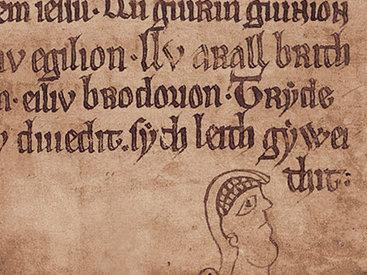 guirin guirion
egilion · Llv arall brith
eiliv brodorion · Tryde
diuedit. sych leith gywei
thit: